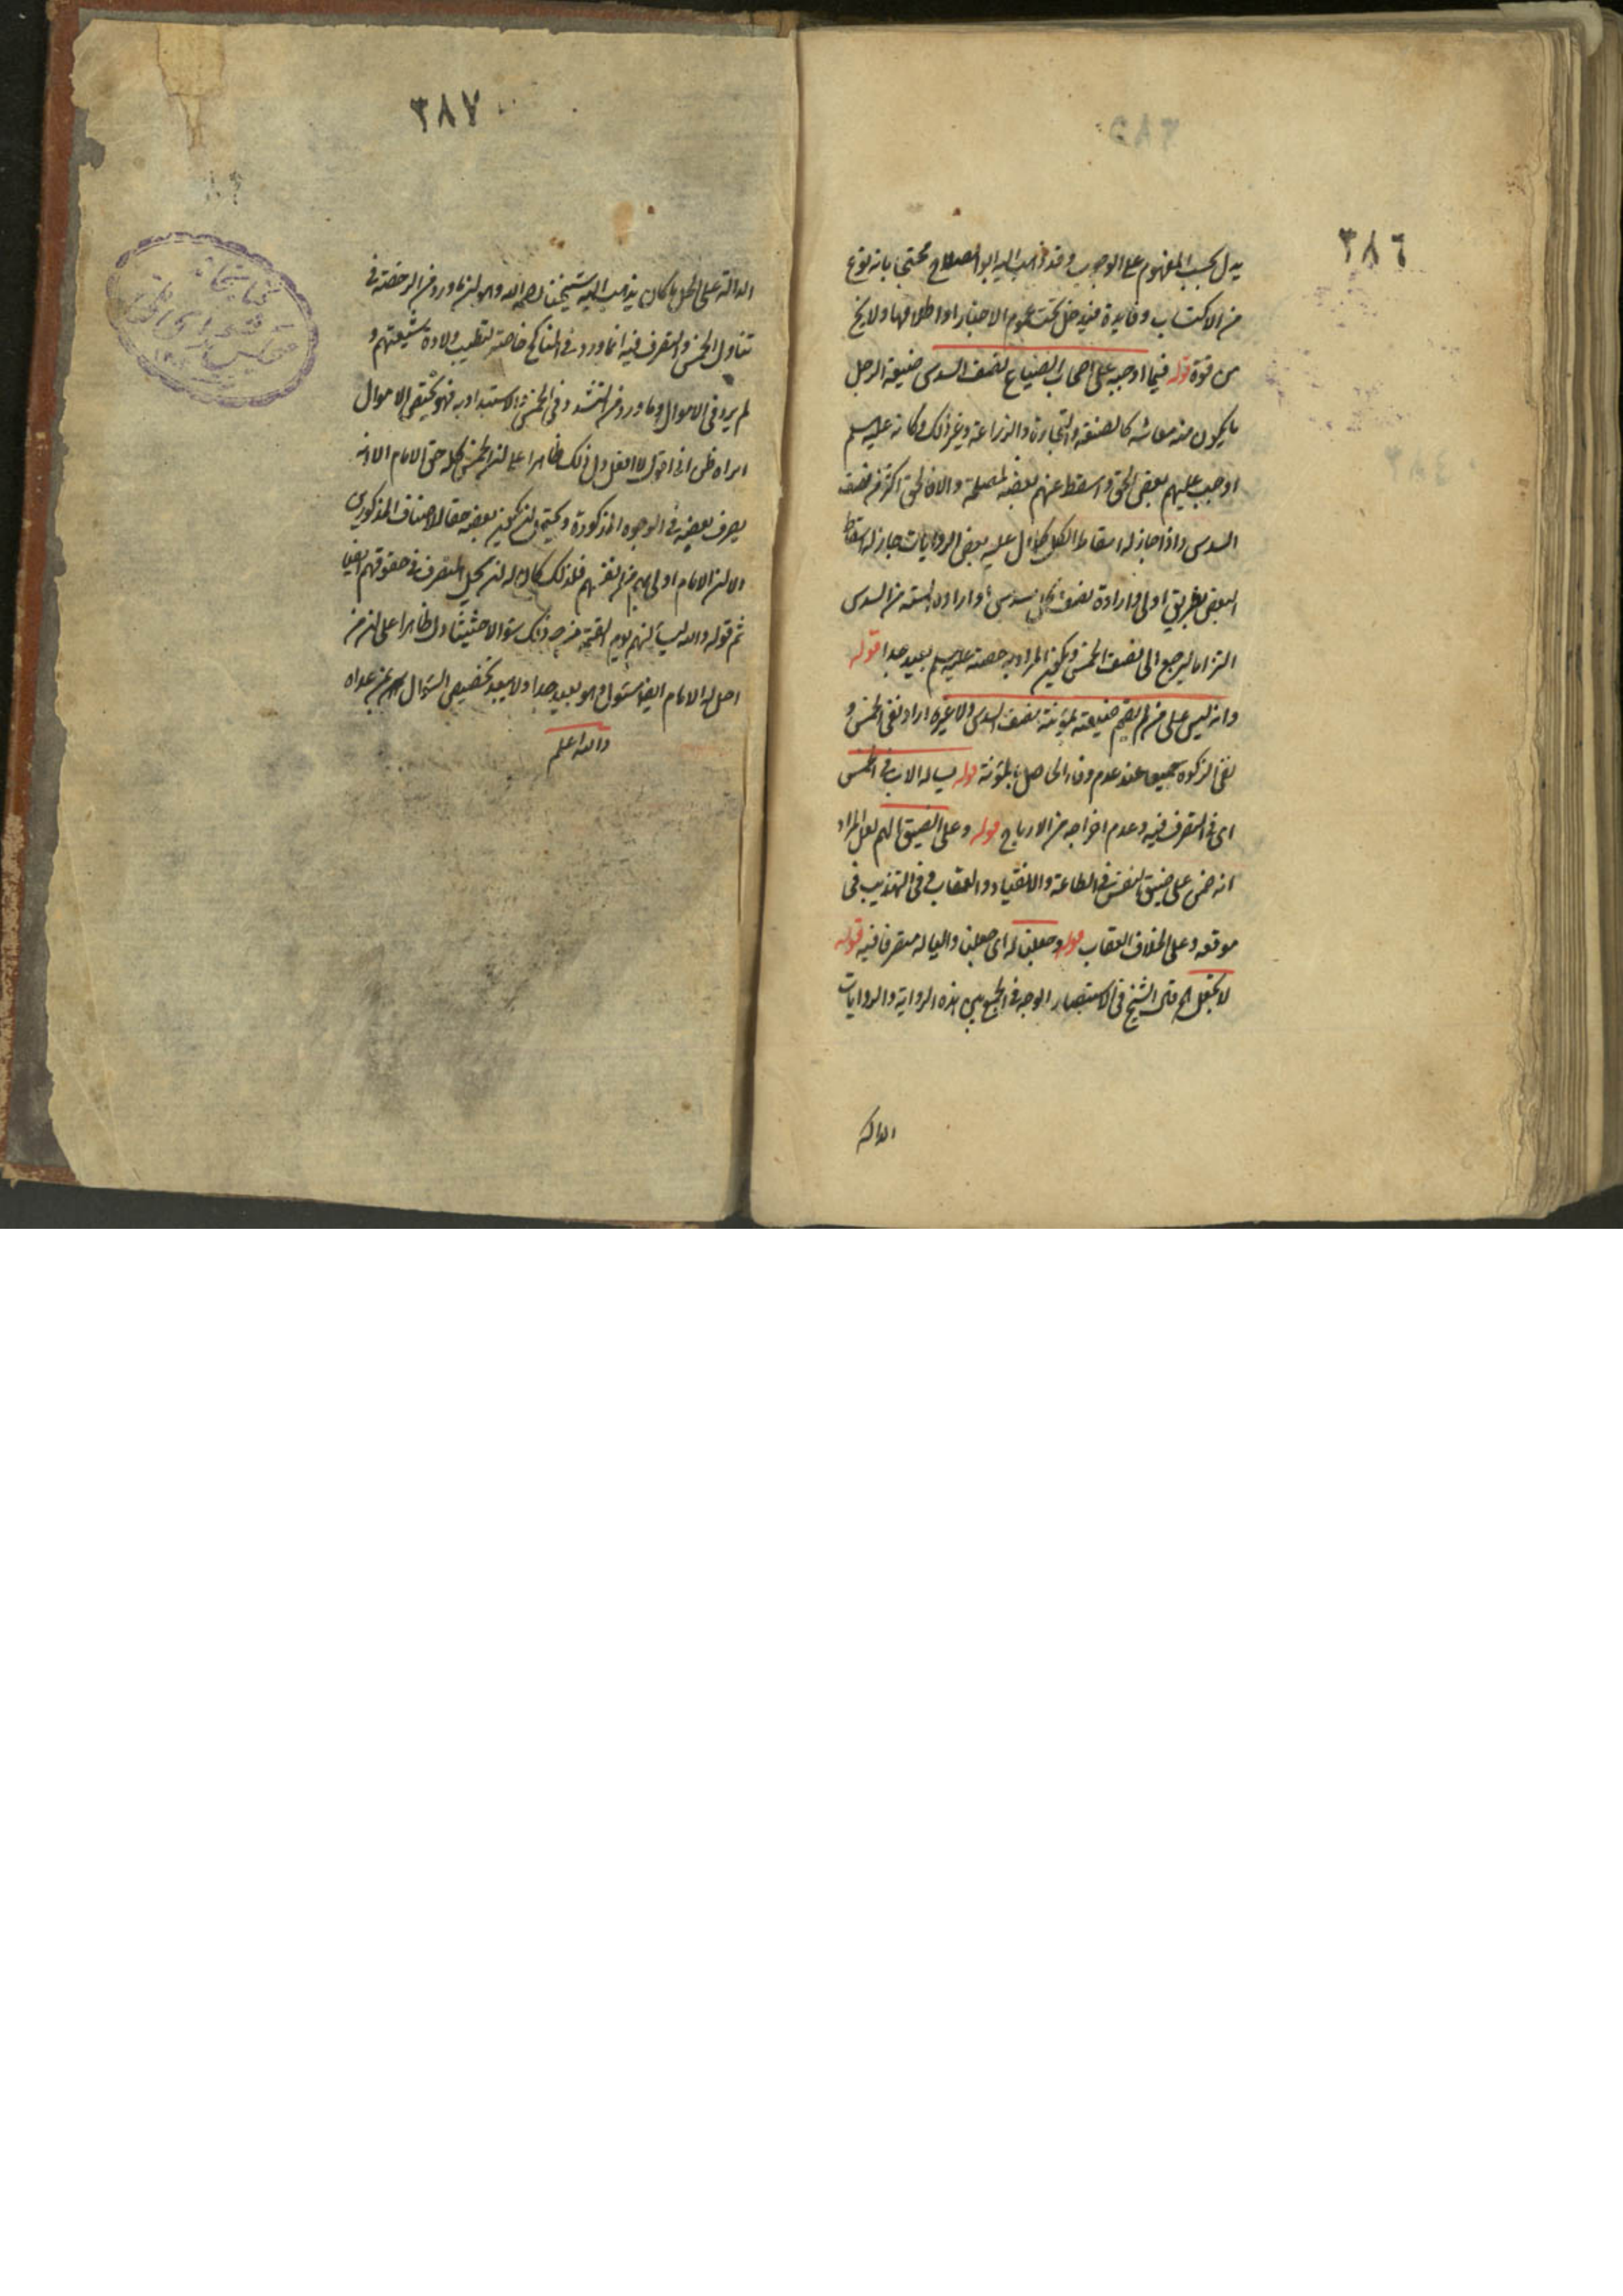 ٣٨٦
يدل بحسب المفهوم على الوجوب وقد ذهب اليه ابو الصلاح محتجا بانه نوع
من الاكتساب وفائدة فيدخل تحت عموم الاخبار او اطلاقها ولا يخ
من قوة قوله فيما اوجبه على اصحاب الضياع نصف السدس ضيعة الرجل
ما يكون منه معاشه كالصنعة والتجارة والزراعة وغير ذلك وكانه عليه السلم
اوجب عليهم بعض الحق واسقط عنهم بعضه لمصلحة والا فالحق اكثر من نصف
السدس واذا جاز له اسقاط الكل كما دل عليه بعض الروايات جاز له اسقاط
البعض بطريق اولى وارادة نصف كل سدس او ارادة الستة من السدس
التزاما ليرجع الى نصف الخمس ويكون المراد به حصته عليه السلم بعيد جدا قوله
وانه ليس على من لم يقم ضيعته بمؤنته نصف السدس ولا غيره اراد نفى الخمس و
نفى الزكوة جميعا عند عدم وفاء الحاصل بالمؤنة قوله يساله الاذن فى الخمس
اى فى التصرف فيه وعدم اخراجه من الارباح قوله وعلى الضيق الهم لعل المراد
انه ضمن على ضيق النفس فى الطاعة والانقياد و العقاب و فى التهذيب فى
موقعه وعلى الخلاف العقاب قوله وجعلنا له اى جعلنا والياله متصرفا فيه قوله
لا نجعل الخ قال الشيخ فى الاستبصار الوجه فى الجمع بين هذه الرواية والروايات
الدالة
٣٨٧
الدالة على الحل ما كان يذهب اليه شيخنا رحمه الله وهو ان ما ورد من الرخصة فى
تناول الخمس والتصرف فيه انما ورد فى المناكح خاصة لتطيب ولادة شيعتهم و
لم يرد فى الاموال وما ورد من التشدد فى الخمس والاستبداد به فهو يختص الاموال
يصرف بعضه فى الوجوه المذكورة ويحتمل ان يكون بعضه حقا للاصناف المذكورين
الا ان الامام اولى بهم من انفسهم فلذلك كان له ان يحل التصرف فى حقوقهم ايضا
ثم قوله والله ليسألنهم يوم القيمة عن ذلك سؤالا حثيثا دل ظاهرا على ان من
احل له الامام ايضا مسئول وهو بعيد جدا ولا يبعد تخصيص السؤال بمن عداه
والله اعلم
كتابخانه
مجلس شورای ملی